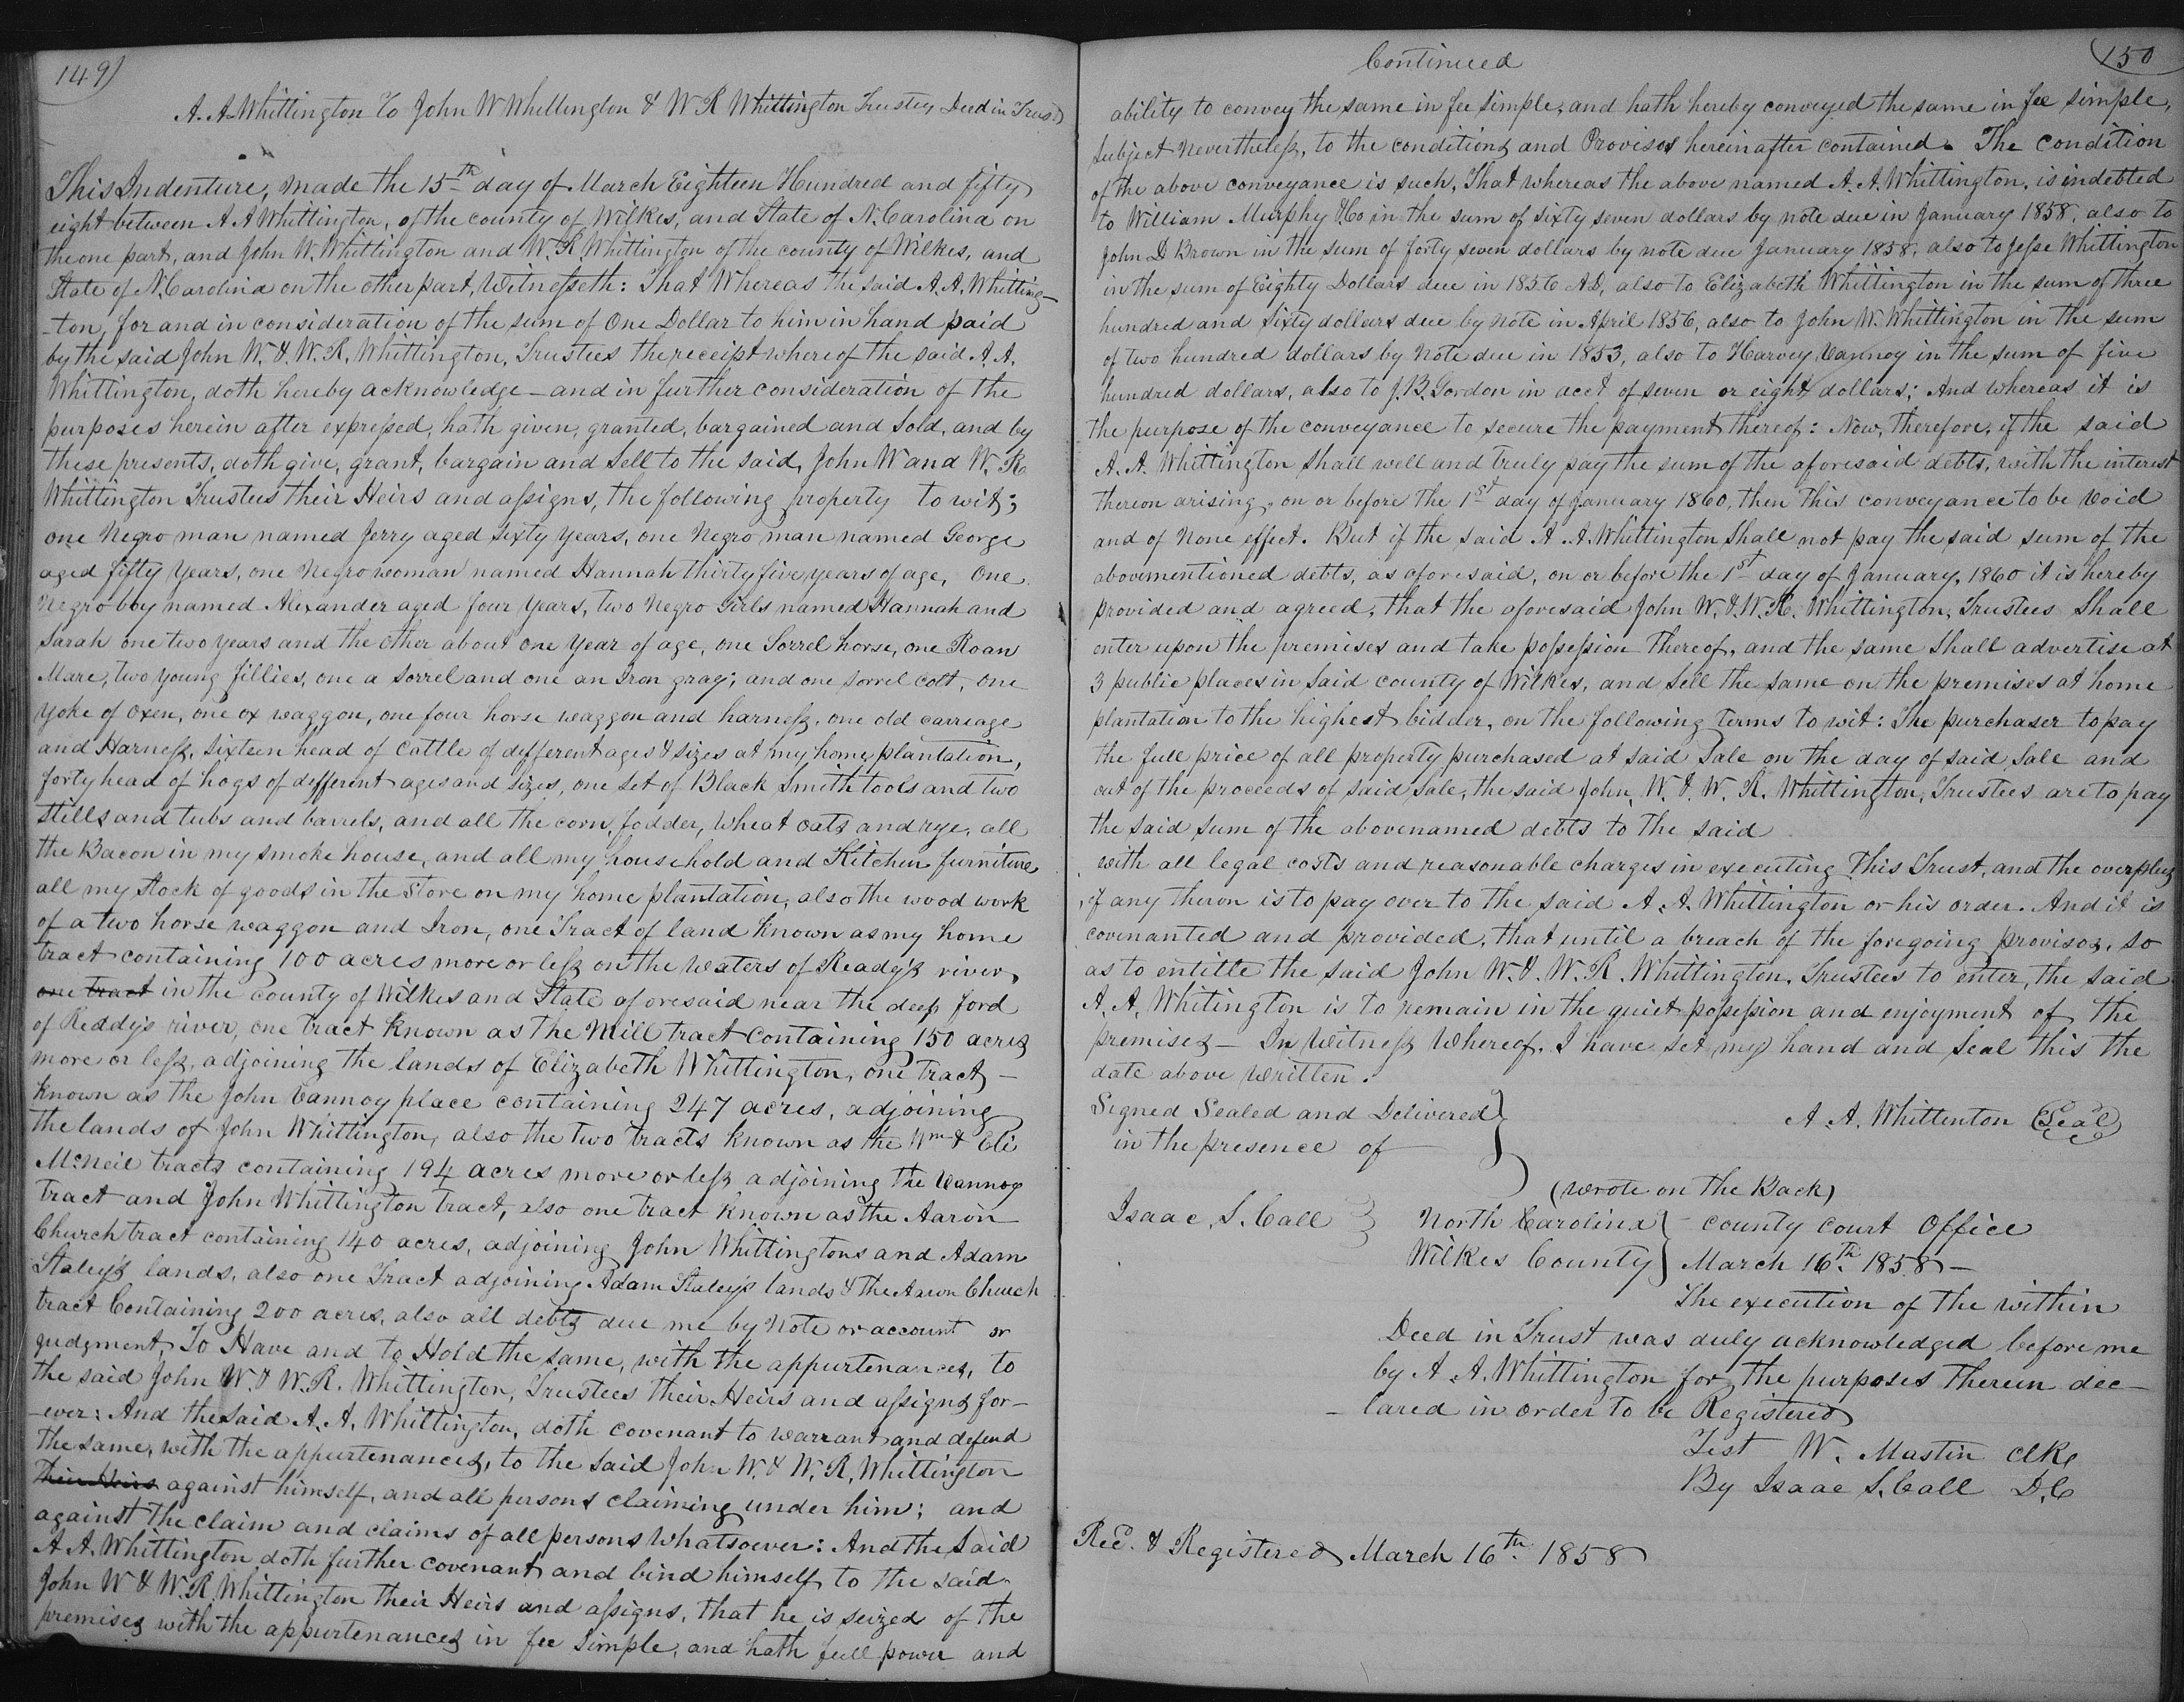 149)
A. A. Whittington To John W Whittington & W R Whittington Trustees Deed in Trust
This Indenture, made the 15th day of March Eighteen Hundred and fifty
eight between A A Whittington, of the county of Wilkes, and State of N. Carolina on
the one part, and John W. Whittington and W. R. Whittington of the county of Wilkes, and
State of N. Carolina on the other part, Witnesseth: That Whereas the said A. A. Whitting-
-ton, for and in consideration of the sum of One Dollar to him in hand paid
by the said John W. & W. R. Whittington, Trustees the receipt whereof the said A. A.
Whittington, doth hereby acknowledge – and in further consideration of the
purposes herein after expressed, hath given, granted, bargained and sold, and by
these presents, doth give, grant, bargain and sell to the said, John W and W. R.
Whittington Trustees their Heirs and assigns, the following property to wit;
one Negro man named Jerry aged sixty years, one Negro man named George
aged fifty years, one Negro woman named Hannah thirty five years of age, One
Negro boy named Alexander aged four years, two Negro Girls named Hannah and
Sarah one two years and the other about one year of age, one Sorrel horse, one Roan
Mare, two young fillies, one a sorrel and one an Iron gray; and one sorrel colt, one
yoke of oxen, one ox waggon, one four horse waggon and harness, one old carriage
and Harness, sixteen head of Cattle of different ages & sizes at my home plantation,
forty head of hogs of different ages and sizes, one set of Black Smith tools and two
stills and tubs and barrels, and all the corn, fodder, wheat oats and rye, all
the Bacon in my smoke house, and all my household and Kitchen furniture
all my stock of goods in the store on my home plantation, also the wood work
of a two horse waggon and Iron, one Tract of land known as my home
tract containing 100 acres more or less on the waters of Ready's river,
one tract in the county of Wilkes and State aforesaid near the deep ford
of Reddy's river, one tract known as the Mill tract containing 150 acres
more or less, adjoining the lands of Elizabeth Whittington, one tract –
known as the John Vannoy place containing 247 acres, adjoining
the lands of John Whittington, also the two tracts known as the Wm & Eli
McNeil tracts containing 194 acres more or less adjoining the Vannoy
tract and John Whittington tract, also one tract known as the Aaron
Church tract containing 140 acres, adjoining John Whittingtons and Adam
Staley's lands, also one Tract adjoining Adam Staley's lands & the Aaron Church
tract Containing 200 acres, also all debts due me by Note or account or
judgment, To Have and to Hold the same, with the appurtenances, to
the said John W. & W. R. Whittington, Trustees their Heirs and assigns for-
-ever: And the said A. A. Whittington, doth covenant to warrant and defend
the same, with the appurtenances, to the said John W. & W. R. Whittington
their Heirs against himself, and all persons claiming under him; and
against the claim and claims of all persons whatsoever: And the said
A A. Whittington doth further covenant and bind himself to the said
John W & W. R. Whittington their Heirs and assigns, that he is seized of the
premises with the appurtenances in fee simple, and hath full power and
Continued
150
ability to convey the same in fee simple, and hath hereby conveyed the same in fee simple,
subject Nevertheless, to the conditions and Provisos hereinafter contained. The condition
of the above conveyance is such, That whereas the above named A. A. Whittington, is indebted
to William Murphy & Co in the sum of sixty seven dollars by note due in January 1858, also to
John D Brown in the sum of forty seven dollars by note due January 1858, also to Jesse Whittington
in the sum of Eighty Dollars due in 1856 AD, also to Elizabeth Whittington in the sum of three
hundred and sixty dollars due by note in April 1856, also to John W. Whittington in the sum
of two hundred dollars by Note due in 1853, also to Harvey Vannoy in the sum of five
hundred dollars, also to J. B. Gordon in acct of seven or eight dollars; And whereas it is
the purpose of the conveyance to secure the payment thereof: Now, therefore, if the said
A. A. Whittington shall well and truly pay the sum of the aforesaid debts, with the interest
thereon arising, on or before the 1st day of January 1860, then This conveyance to be Void
and of None effect. But if the said A. A. Whittington shall not pay the said sum of the
abovementioned debts, as aforesaid, on or before the 1st day of January, 1860 it is hereby
provided and agreed, that the aforesaid John W. & W. R. Whittington, Trustees shall
enter upon the premises and take possession thereof, and the same shall advertise at
3 public places in said county of Wilkes, and sell the same on the premises at home
plantation to the highest bidder, on the following terms to wit: The purchaser to pay
the full price of all property purchased at said Sale on the day of said Sale and
out of the proceeds of said sale, the said John, W. & W. R. Whittington, Trustees are to pay
the said sum of the abovenamed debts to the said
with all legal costs and reasonable charges in executing This Trust, and the overplus
if any theron is to pay over to the said A. A. Whittington or his order. And it is
covenanted and provided, that until a breach of the foregoing provisos, so
as to entitle the said John W. & W. R. Whittington, Trustees to enter, the said
A. A. Whitington is to remain in the quiet possession and enjoyment of the
premises – In Witness Whereof, I have set my hand and seal this the
date above written.
Signed Sealed and Delivered }
in the presence of
A. A. Whittenton (Seal)
(wrote on the Back)
Isaac, S. Call
North Carolina } county court Office
Wilkes County } March 16th 1858 –
The execution of the within
Deed in Trust was duly acknowledged before me
by A. A. Whittington for the purposes therein dec-
- lared in order to be Registered
Test W. Mastin Clk
By Isaac S. Call D.C
Recd. & Registered March 16th 1858